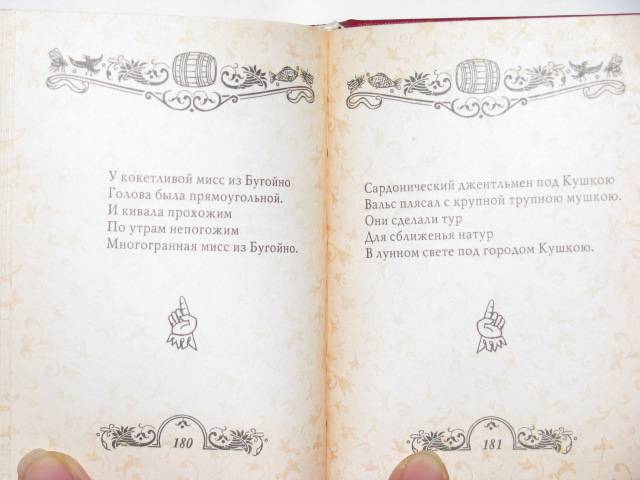 У кокетливой мисс из Бугойно
Голова была прямоугольной.
И кивала прохожим
По утрам непогожим
Многогранная мисс из Бугойно.
180
Сардонический джентльмен под Кушкою
Вальс плясал с крупной трупною мушкою.
Они сделали тур
Для сближенья натур
В лунном свете под городом Кушкою.
181